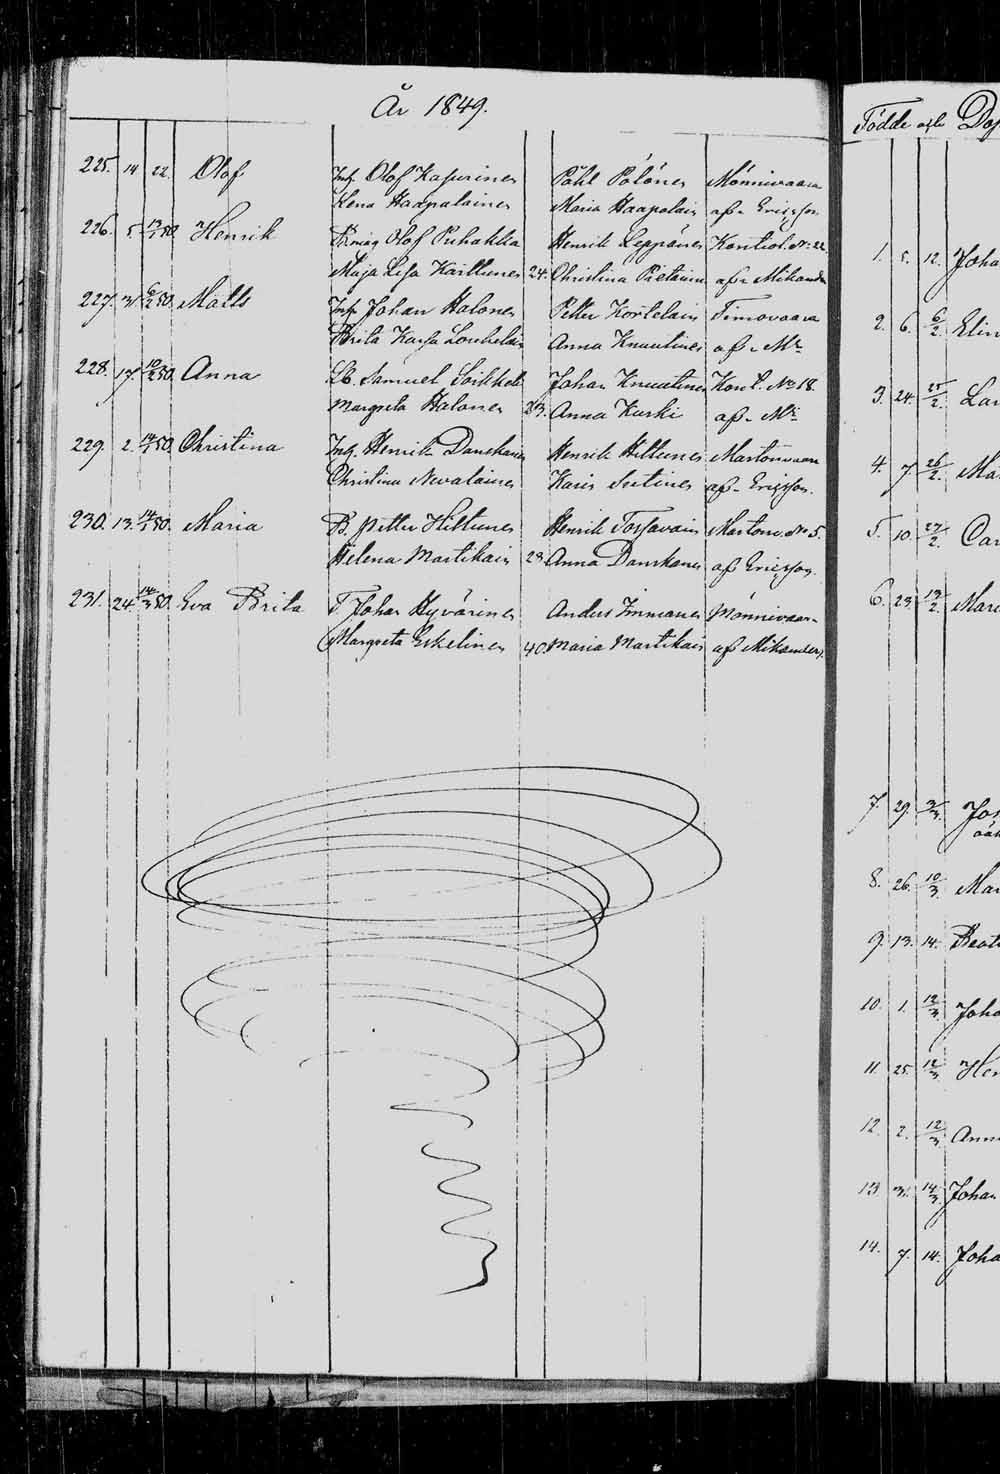 År 1849.
225. 14 22. Olof Inh. Olof Kapurinen Påhl Pölönen Mönnivaara
Lena Haapalainen Maria Haapalain af Ericsson
226. 5 13/1 50. Henrik Olof Puhakka Henrik Leppänen Kontiol. No 22
Maja Lisa Karttunen 24. Christina Pietarin af Mikander
227. 31 6/2 50. Matts Inh Johan Halonen Petter Kortelain Timovaara
Brita Kaisa Louhelain Anna Knuutinen af Mr
228. 17. 10/2 50. Anna Lb. Samuel Soikkeli Johan Knuutinen Kont. No 18
Margreta Halonen 23. Anna Kurki af Mr
229. 2. 14/1 50. Christina Inh. Henrik Danskanen Henrik Hiltunen Martonvaara
Christina Nevalainen Karin Sutinen af Ericsson.
230. 13. 14/1 50. Maria B. Petter Hiltunen Henrik Torfvain Martonv. No 5.
Helena Martikain 28 Anna Danskanen af Ericsson.
231. 24. 14/3 50. Eva Brita T. Johan Hyvärinen Anders Immonen Mönnivaara
Margreta Eskelinen 40. Maria Martikain af Mikander.
Födde och Döp
1. 5. 12. Joha
2. 6. 6/2. Elin
3. 24. 25/2. Lar
4. 7 26/2. Ma
5. 10. 27/2. Car
6. 23. 13/2. Mari
7. 29. 3/3. Joh
8. 26. 10/3. Mar
9. 13. 14. Beat
10. 1. 12/3. Joha
11. 25. 12/3. Hen
12. 2. 12/3. Ann
13. 31. 14/3. Johan
14. 7. 14. Joha